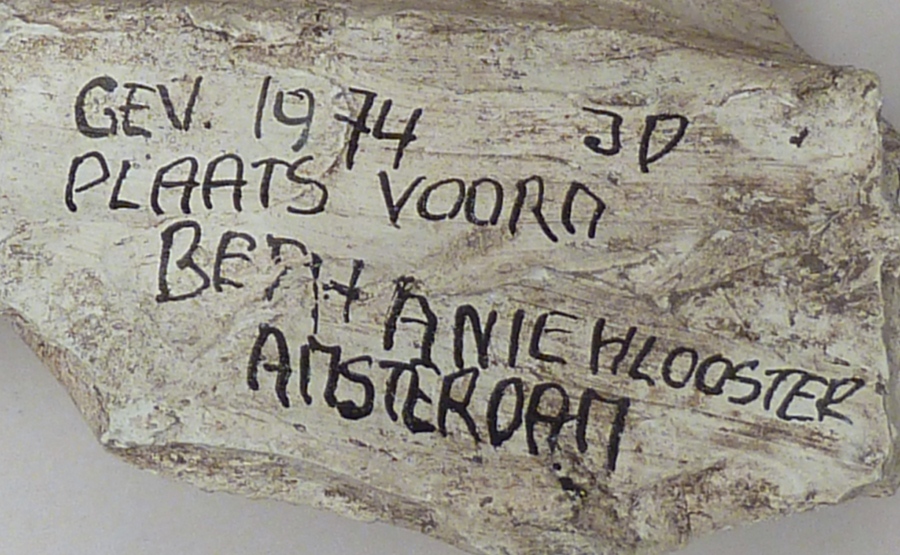 GEV. 1974 JD
PLAATS VOORM
BETHANIEKLOOSTER
AMSTERDAM